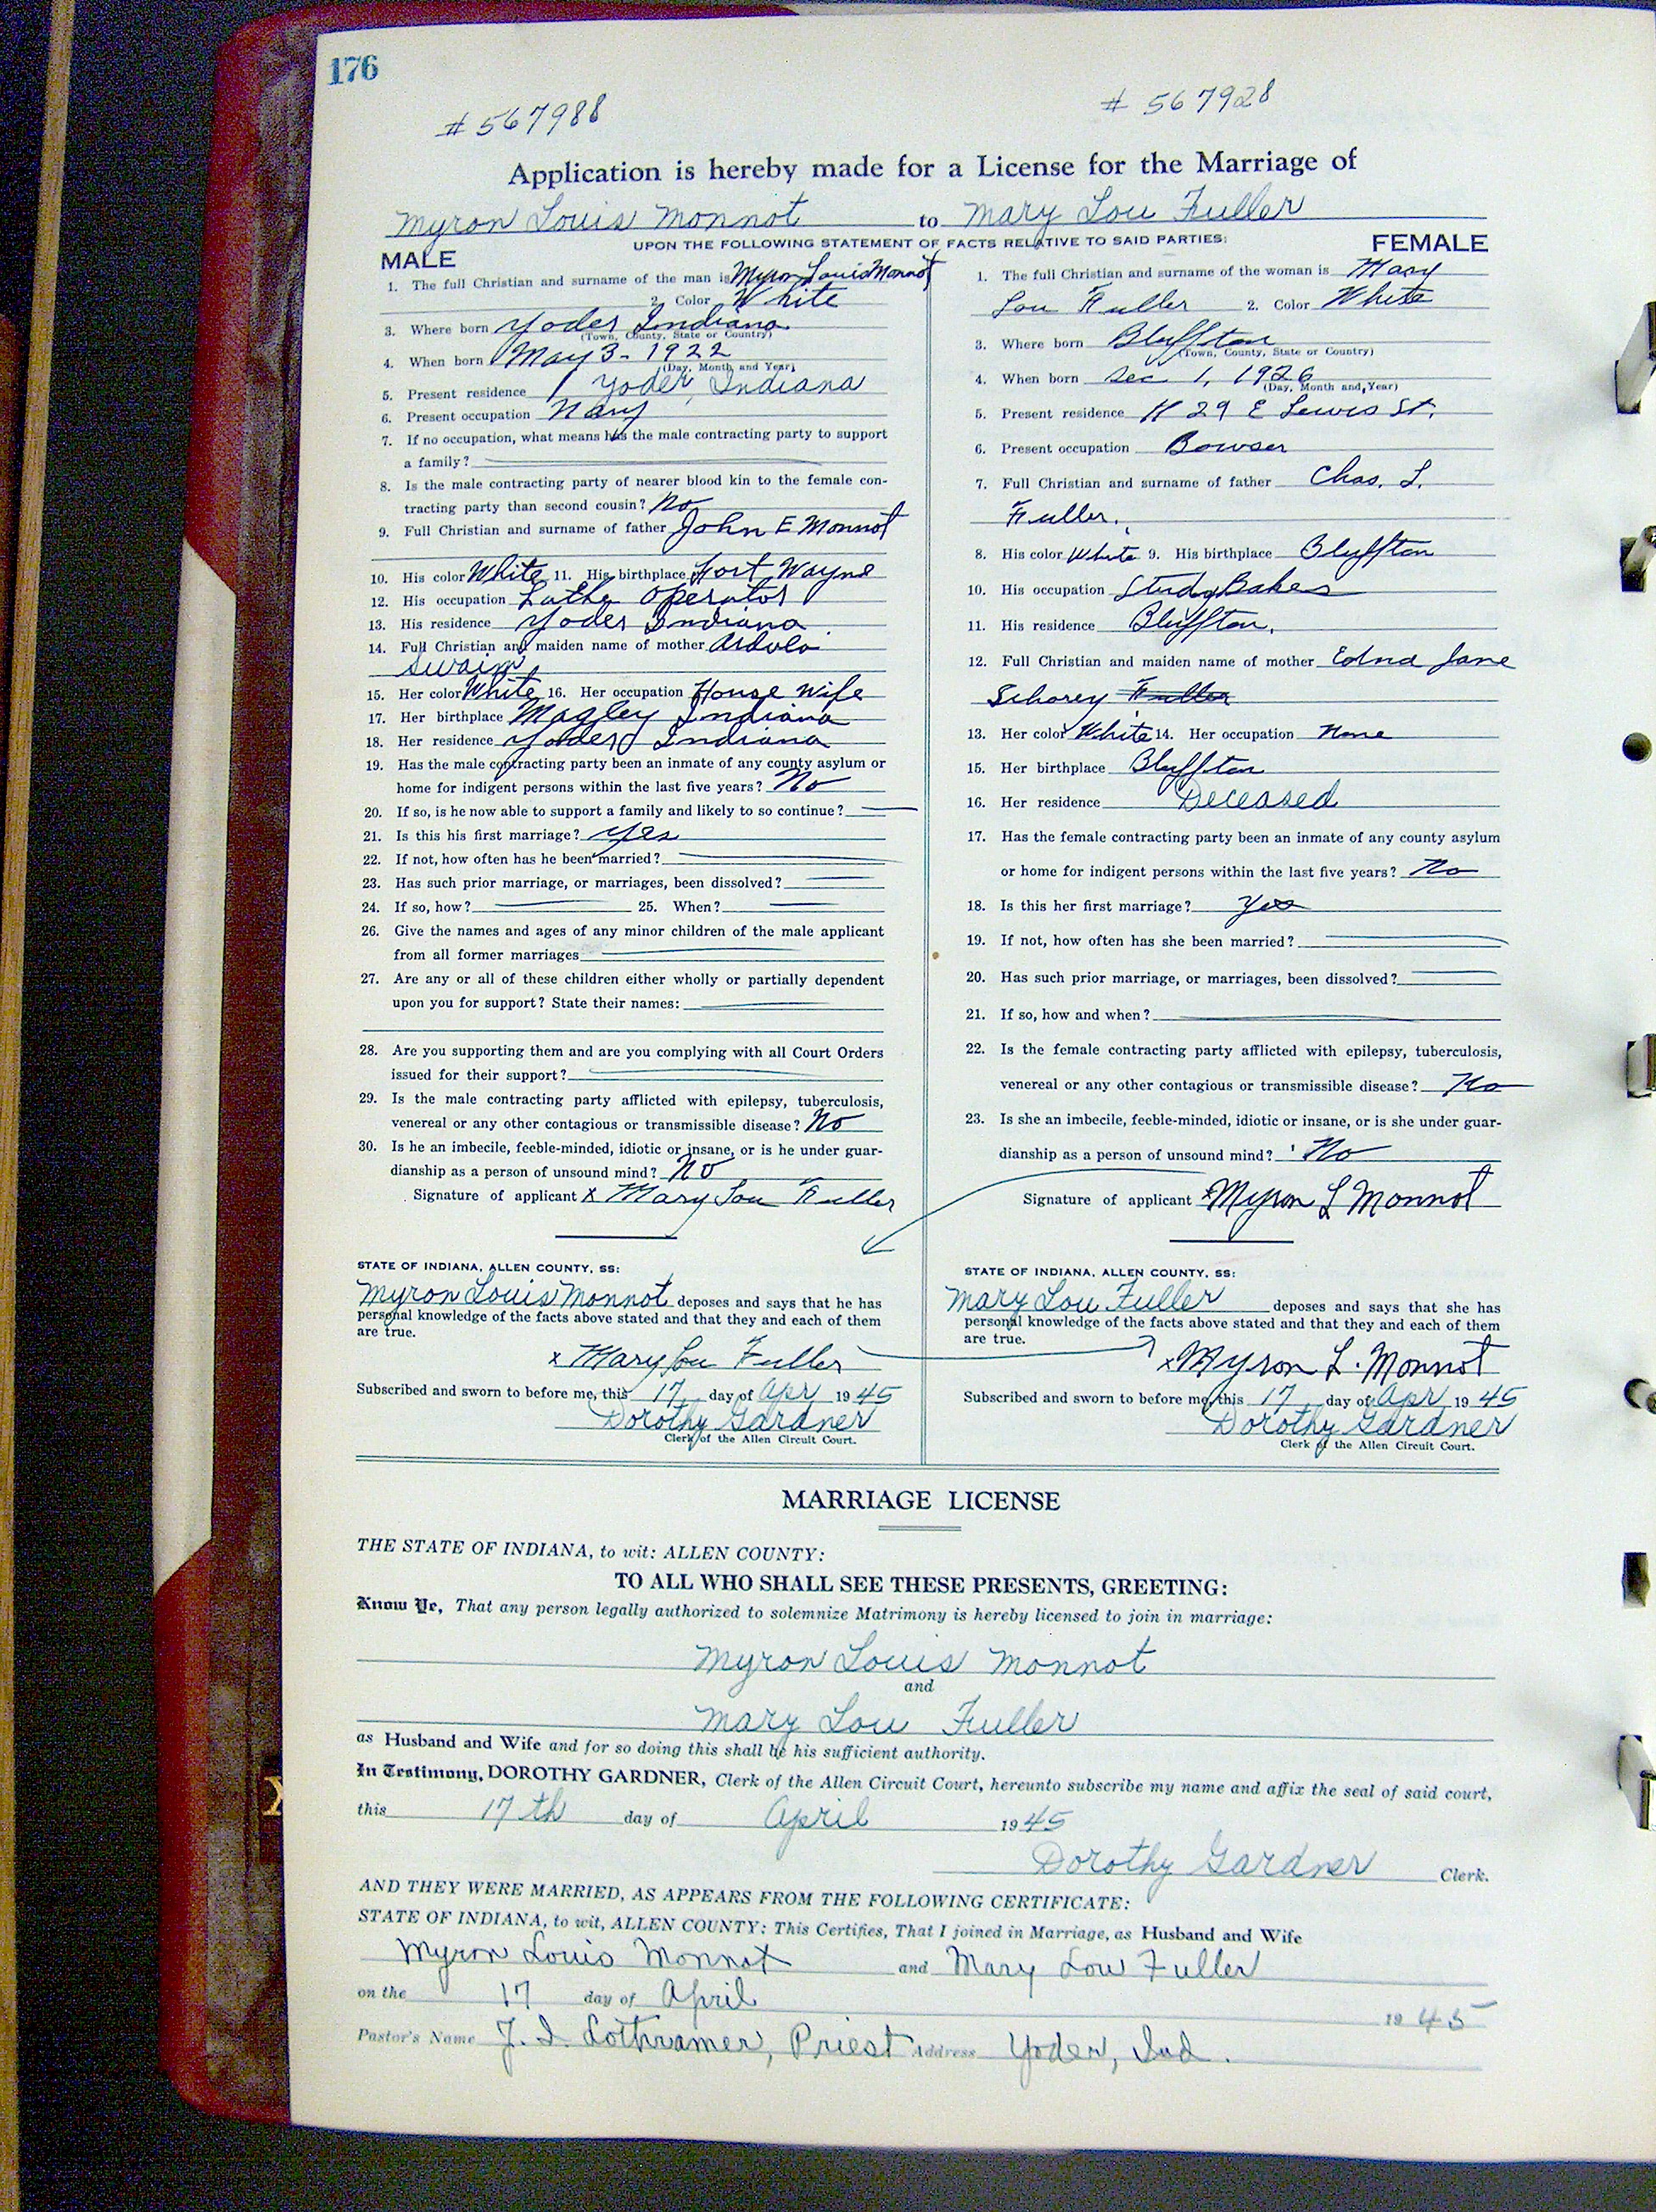 176
#567988
# 567928
Application is hereby made for a License for the Marriage of
Myron Louis Monnot to Mary Lou Fuller
UPON THE FOLLOWING STATEMENT OF FACTS RELATIVE TO SAID PARTIES:
MALE
1. The full Christian and surname of the man is Myron Louis Monnot
2. Color White
3. Where born Yoder Indiana
(Town, County, State or Country)
4. When born May 3 - 1922
(Day, Month and Year)
5. Present residence Yoder, Indiana
6. Present occupation Navy
7. If no occupation, what means has the male contracting party to support
a family?
8. Is the male contracting party of nearer blood kin to the female con-
tracting party than second cousin? No
9. Full Christian and surname of father John E Monnot
10. His color White 11. His birthplace Fort Wayne
12. His occupation Lathe Operator
13. His residence Yoder Indiana
14. Full Christian and maiden name of mother
Swaim
15. Her color White 16. Her occupation House Wife
17. Her birthplace Magley Indiana
18. Her residence Yoder Indiana
19. Has the male contracting party been an inmate of any county asylum or
home for indigent persons within the last five years? No
20. If so, is he now able to support a family and likely to so continue?
21. Is this his first marriage? Yes
22. If not, how often has he been married?
23. Has such prior marriage, or marriages, been dissolved?
24. If so, how? 25. When?
26. Give the names and ages of any minor children of the male applicant
from all former marriages
27. Are any or all of these children either wholly or partially dependent
upon you for support? State their names:
28. Are you supporting them and are you complying with all Court Orders
issued for their support?
29. Is the male contracting party afflicted with epilepsy, tuberculosis,
venereal or any other contagious or transmissible disease? No
30. Is he an imbecile, feeble-minded, idiotic or insane, or is he under guar-
dianship as a person of unsound mind? No
Signature of applicant x Mary Lou Fuller
STATE OF INDIANA, ALLEN COUNTY, SS:
Myron Louis Monnot deposes and says that he has
personal knowledge of the facts above stated and that they and each of them
are true.
x Mary Lou Fuller
Subscribed and sworn to before me, this 17 day of Apr 1945
Dorothy Gardner
Clerk of the Allen Circuit Court.
FEMALE
1. The full Christian and surname of the woman is Mary
Lou Fuller 2. Color White
3. Where born Bluffton
(Town, County, State or Country)
4. When born Dec 1, 1926
(Day, Month and Year)
5. Present residence 1129 E Lewis St.
6. Present occupation Bowser
7. Full Christian and surname of father Chas. L.
Fuller.
8. His color White 9. His birthplace Bluffton
10. His occupation StudyBaker
11. His residence Bluffton.
12. Full Christian and maiden name of mother Edna Jane
Schorey Fuller
13. Her color White 14. Her occupation None
15. Her birthplace Bluffton
16. Her residence Deceased
17. Has the female contracting party been an inmate of any county asylum
or home for indigent persons within the last five years? No
18. Is this her first marriage? Yes
19. If not, how often has she been married?
20. Has such prior marriage, or marriages, been dissolved?
21. If so, how and when?
22. Is the female contracting party afflicted with epilepsy, tuberculosis,
venereal or any other contagious or transmissible disease? No
23. Is she an imbecile, feeble-minded, idiotic or insane, or is she under guar-
dianship as a person of unsound mind? No
Signature of applicant x Myron L Monnot
STATE OF INDIANA, ALLEN COUNTY, SS:
Mary Lou Fuller deposes and says that she has
personal knowledge of the facts above stated and that they and each of them
are true.
x Myron L. Monnot
Subscribed and sworn to before me, this 17 day of Apr 1945
Dorothy Gardner
Clerk of the Allen Circuit Court.
MARRIAGE LICENSE
THE STATE OF INDIANA, to wit: ALLEN COUNTY:
TO ALL WHO SHALL SEE THESE PRESENTS, GREETING:
Know Ye, That any person legally authorized to solemnize Matrimony is hereby licensed to join in marriage:
Myron Louis Monnot
and
Mary Lou Fuller
as Husband and Wife and for so doing this shall be his sufficient authority.
In Testimony, DOROTHY GARDNER, Clerk of the Allen Circuit Court, hereunto subscribe my name and affix the seal of said court,
this 17th day of April 1945
Dorothy Gardner Clerk.
AND THEY WERE MARRIED, AS APPEARS FROM THE FOLLOWING CERTIFICATE:
STATE OF INDIANA, to wit, ALLEN COUNTY: This Certifies, That I joined in Marriage, as Husband and Wife
Myron Louis Monnot and Mary Lou Fuller
on the 17 day of April 1945
Pastor's Name J. I. Lothramer, Priest Address Yoder, Ind.